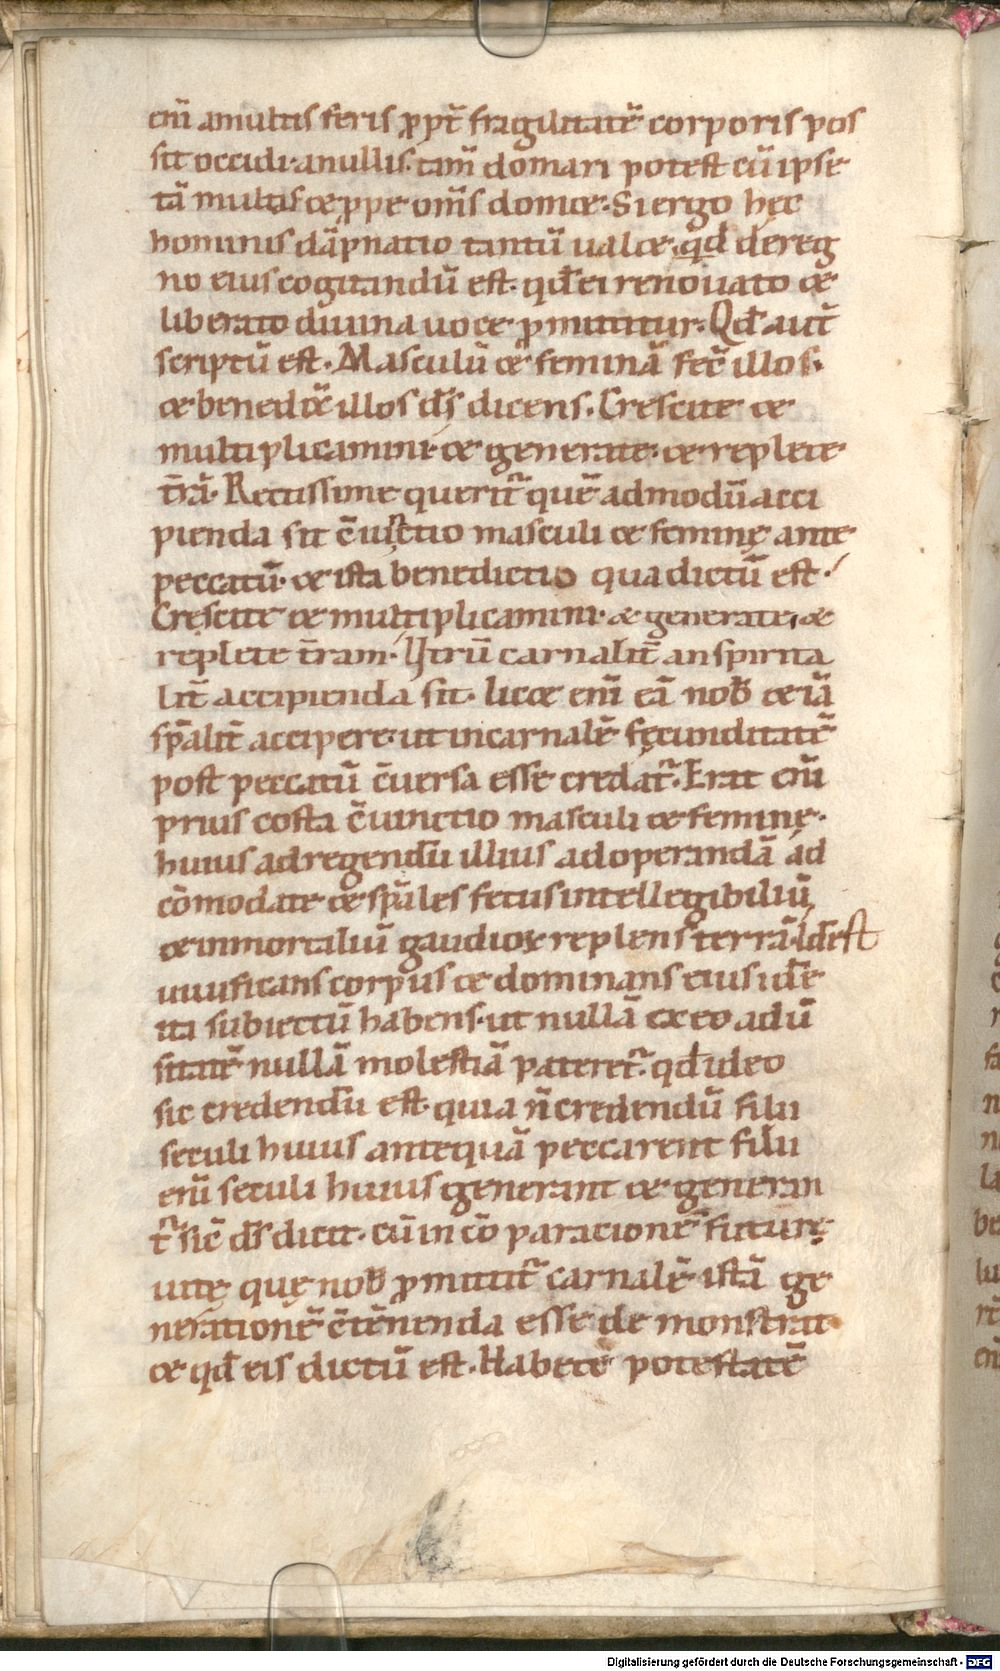 cũ amultis feris ꝓpt̃ fragilitatẽ corporis pos
sit occidi·anullis·tam̃ domari potest cũ ipse
tã multas & ꝓpe om̃s dom&·Si ergo hęc
hominis dãpnatio tantũ ual&·qđ dereg
no eius cogitandũ est·qđ ei renouato &
liberato diuina uoce ꝓmittitur·Qđ aut̃
scriptũ est·Masculũ & feminã fec̃ illos·
& bened̃x̃ illos d̃s dicens·Crescite &
multiplicamini·& generate·& replete
t̃rã·Rectissime querit̃ quẽ admodũ acci
pienda sit c̃iũctio masculi & feminę ante
peccatũ·& ista benedictio qua dictũ est·
Crescite & multiplicamini·& generate·&
replete t̃ram·Utrũ carnalit̃ an spirita
lit̃ accipienda sit·lic& eni̅ eã nob̃ & iã
sp̃alit̃ accipere·ut incarnalẽ fęcunditatẽ
post peccatũ c̃uersa esse credat̃·Erat eni̅
prius costa c̃iunctio masculi & feminę·
huius adregendũ illius adoperandã ad
cõmodate & sp̃ales fetus intellegibiliũ
& inmortaliũ gaudioꝝ replens terrã·Idest
uiuificans corpus & dominans eius idẽ
ita subiectũ habens·ut nullã ex eo aduer̃
sitatẽ nullã molestiã pateret̃·qđ ideo
sic credendũ est·quia ñ credendũ filii
seculi huius antequã peccarent filii
eni̅ seculi huius generant & generan
t̃ sic̃ d̃s dicit·cũ in cõparacionẽ futurę
uitę quę nob̃ ꝓmittit̃ carnalẽ istã ge
nerationẽ c̃tẽnenda esse demonstrat
& qđ eis dictũ est·Habete potestatẽ
Digitalisierung gefördert durch die Deutsche Forschungsgemeinschaft - DFG